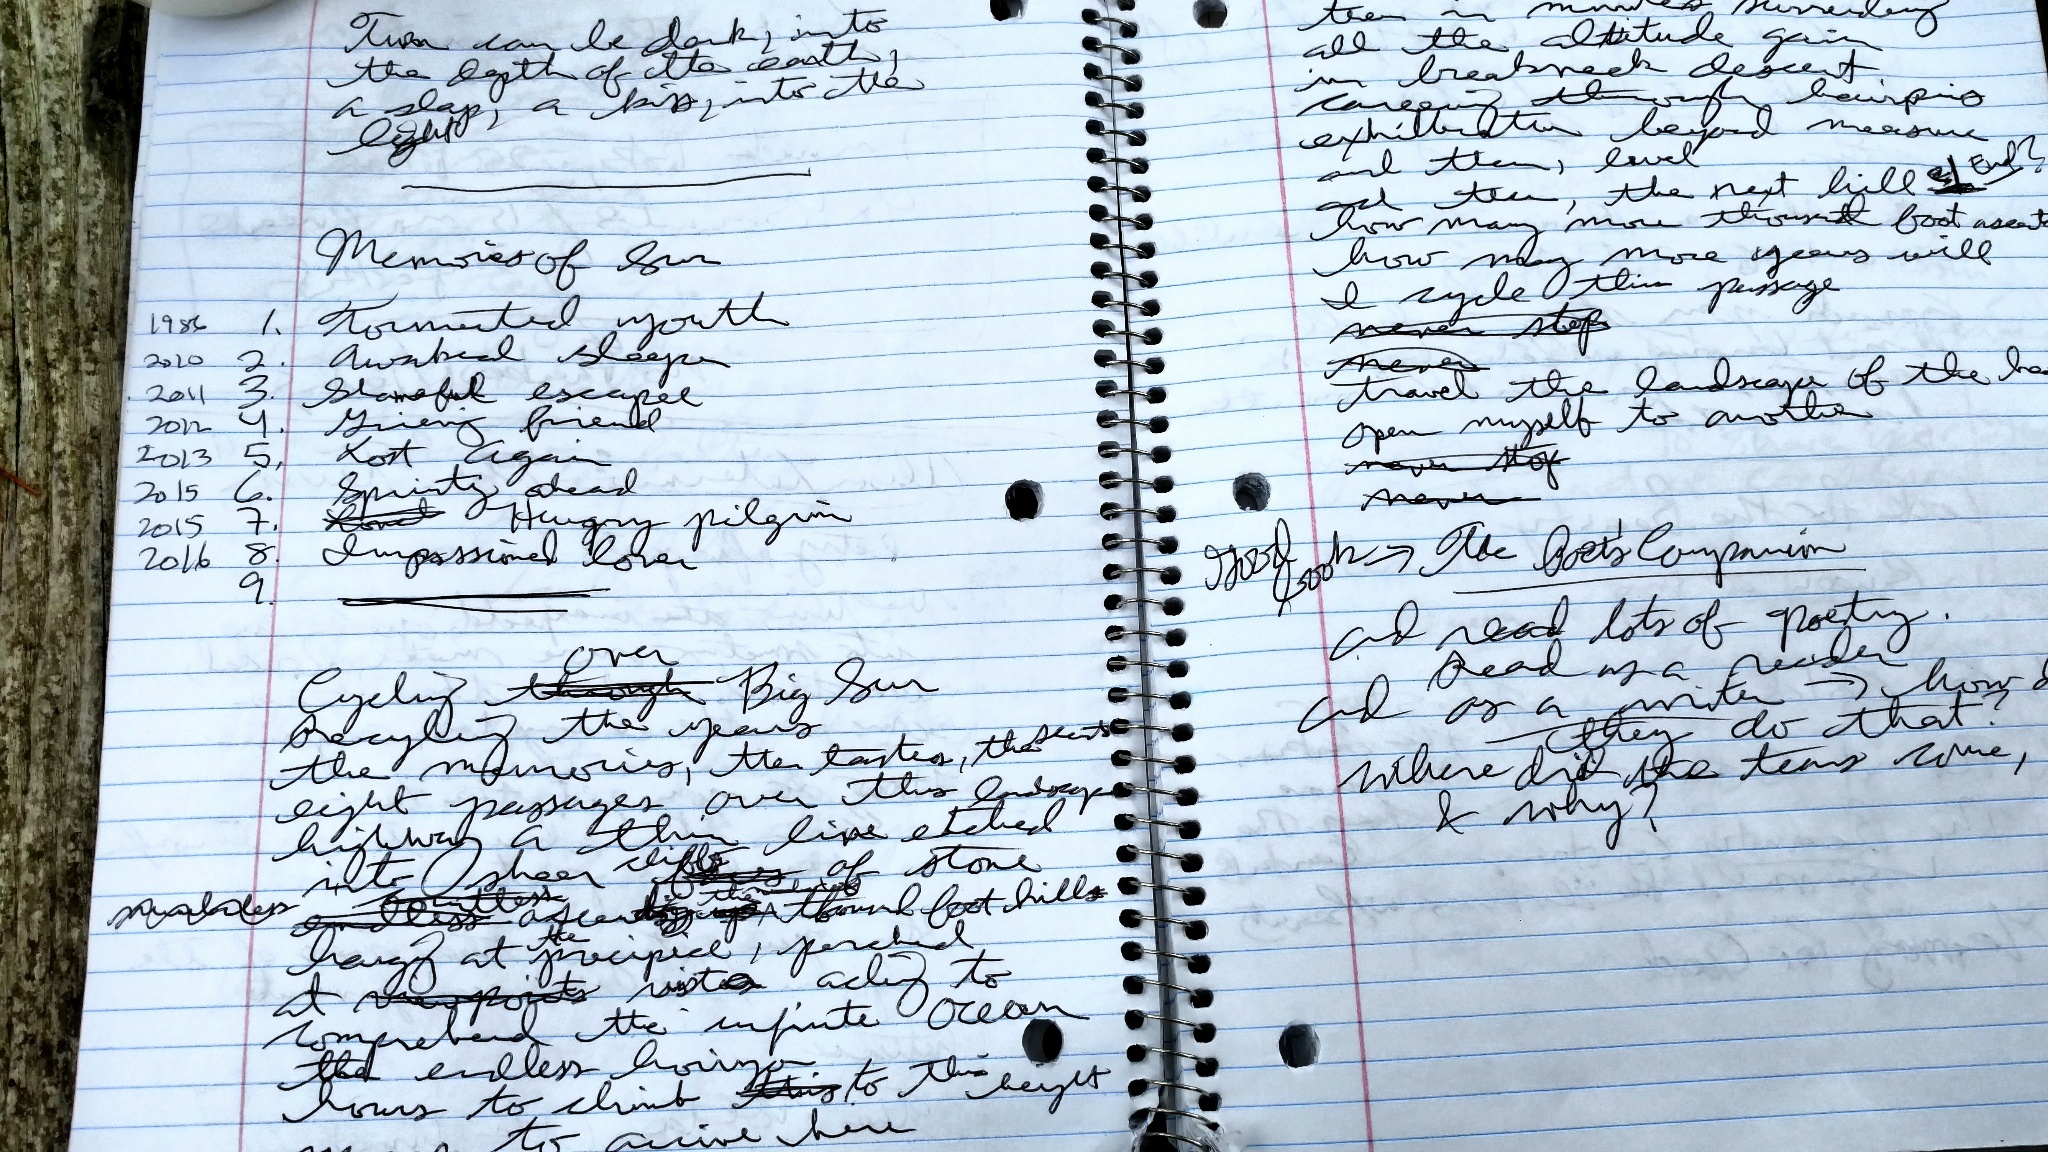 Turn can be dark, into
the depth of the earth,
a slap, a kiss, into the
light
Memories of Sur
1986 1. Tormented youth
2010 2. Awakened sleeper
2011 3. Shameful escapee
2012 4. Grieving friend
2013 5. Lost Again
2015 6. dead
2015 7. Hungry pilgrim
2016 8. Impassioned lover
9.
over
Cycling through Big Sur
Recycling the years
the memories, the tastes, the scents
eight passages over this landscape
highway a thin line etched
into sheer cliffs of stone
countless
endless foot hills
hanging at the precipice, perched
at viewpoints vistas aching to
comprehend the infinite ocean
the endless horizon
hours to climb this to this height
to arrive here
then in minutes surrendering
all the altitude gain
in breakneck descent
careening through hairpins
exhilaration beyond measure
and then, level
and then, the next hill End?
how many more thousand foot ascents
how many more years will
I cycle this passage
never stop
never
travel the landscape of the
open myself to another
never stop
never
good book → The Poet's Companion
and read lots of poetry.
Read as a reader
and as a writer → how
they do that?
where did the tears come,
& why?